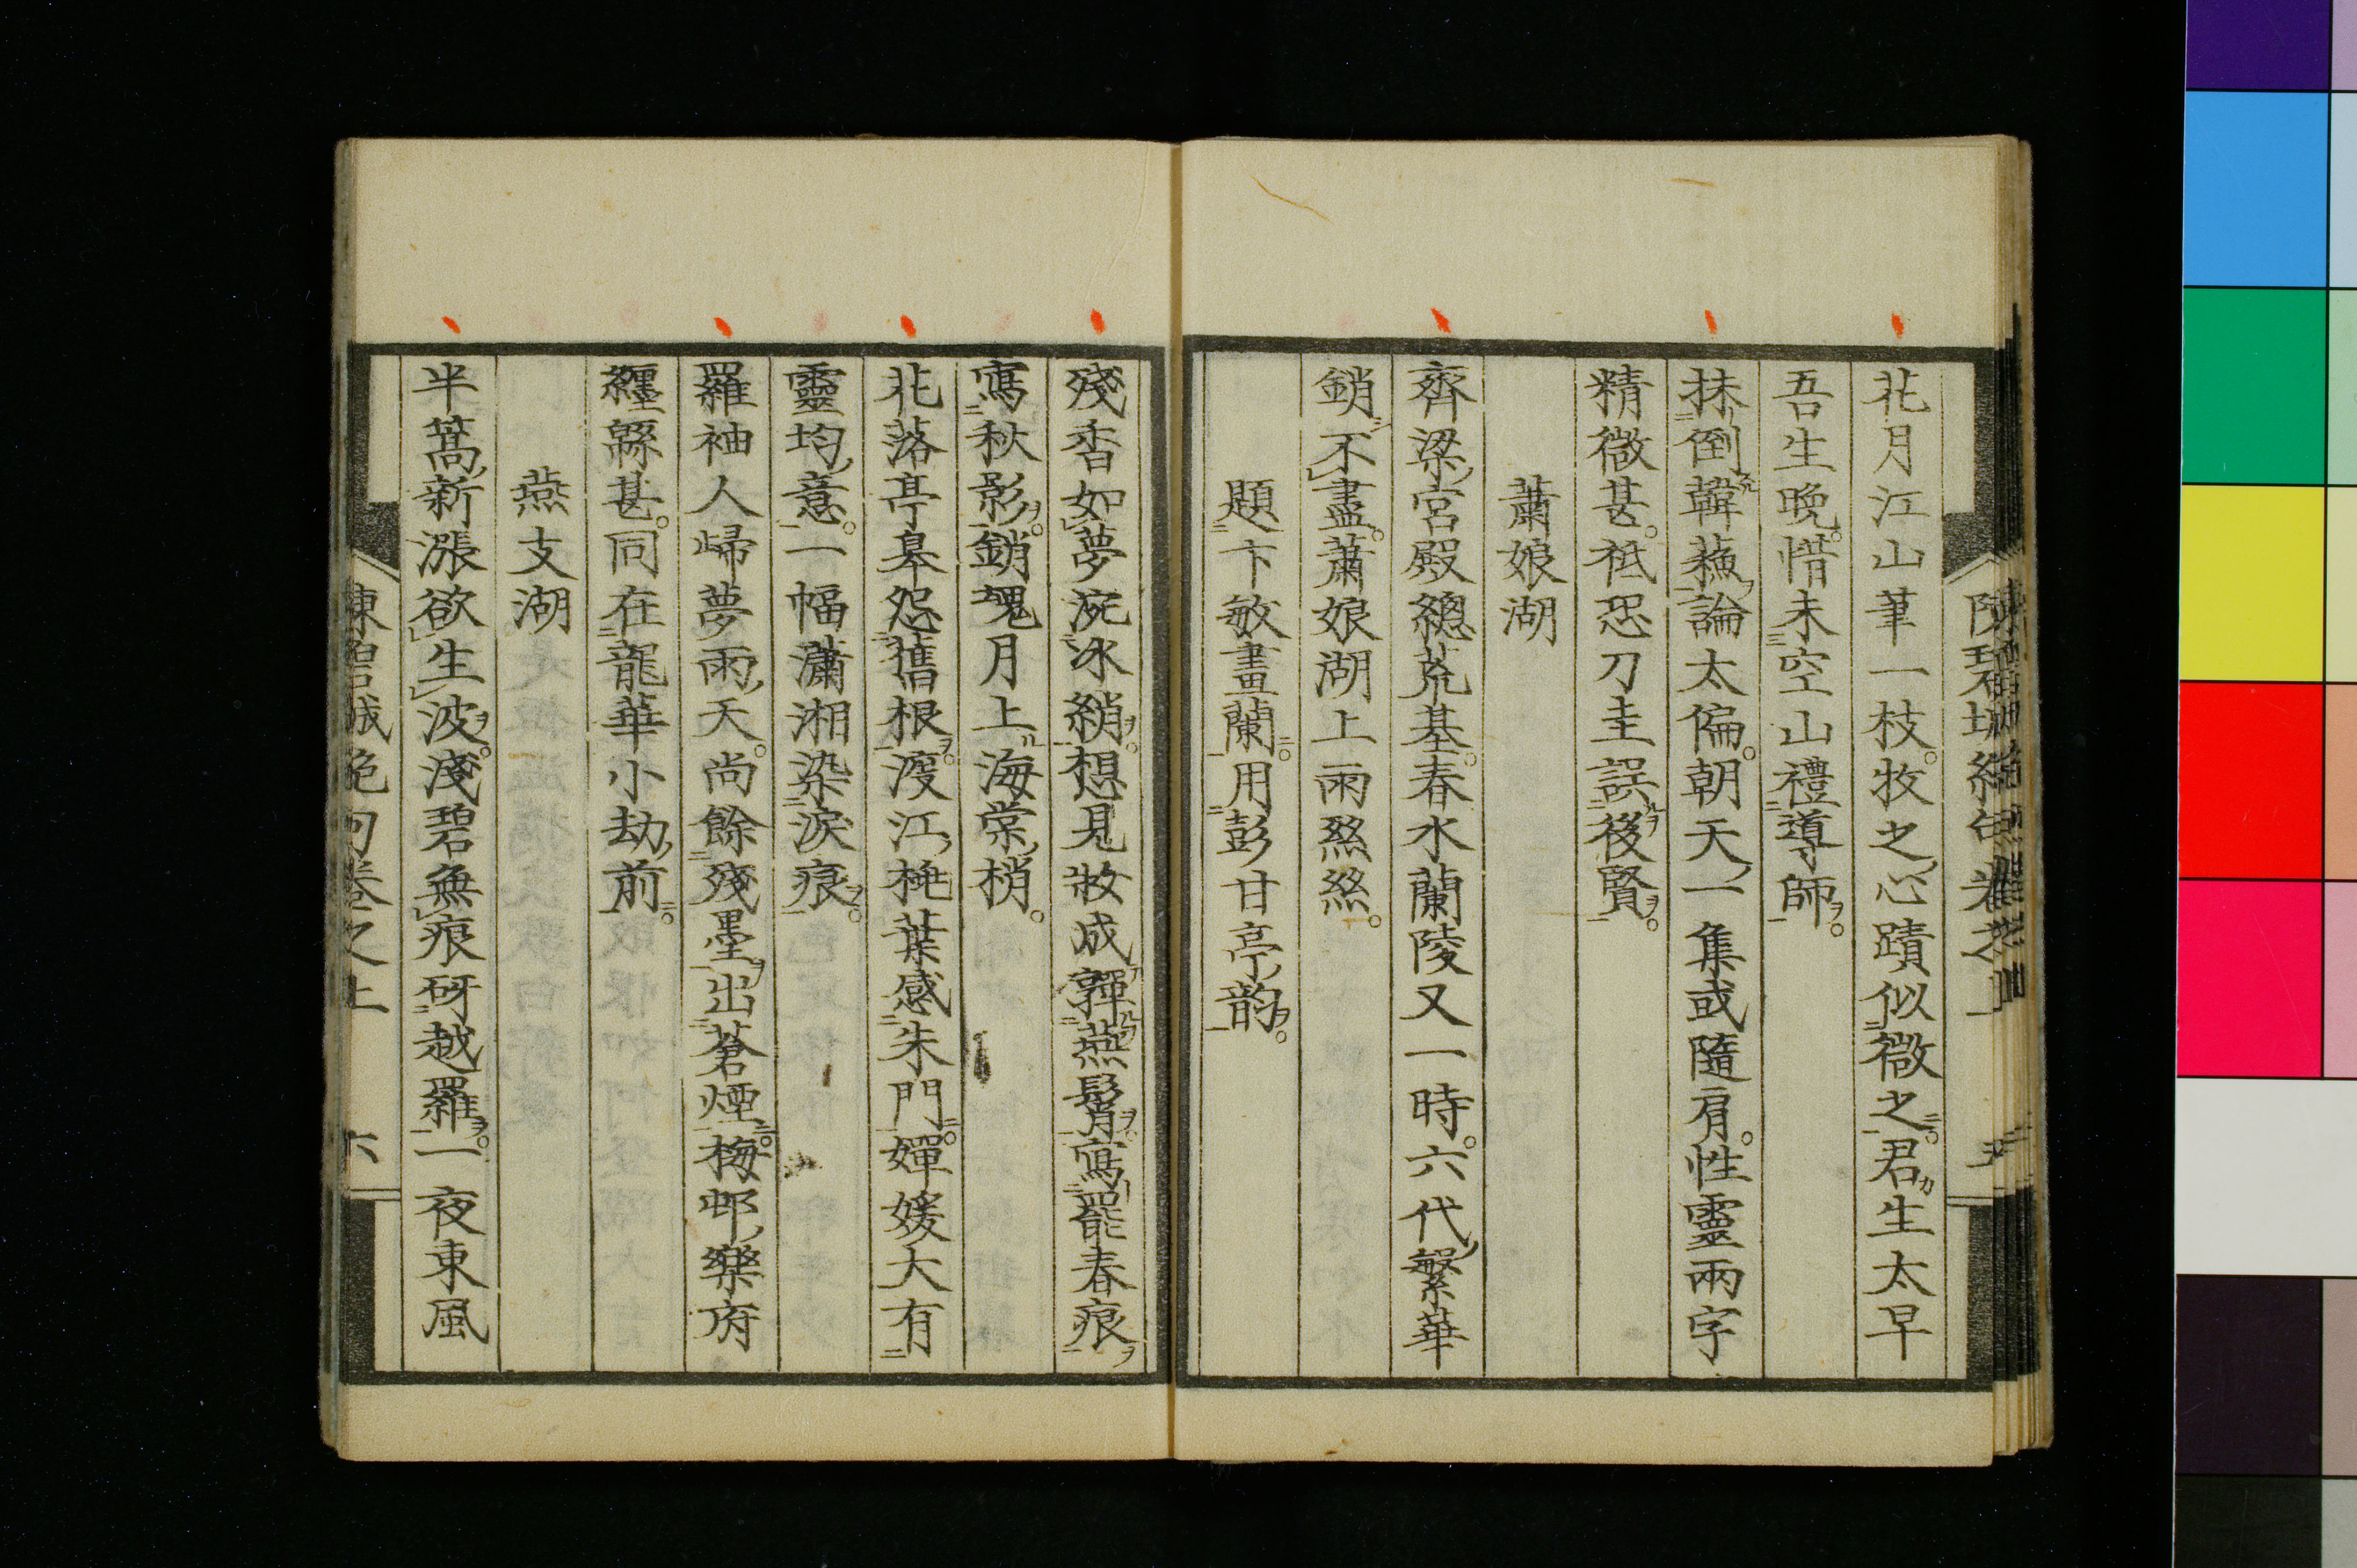 花月江山筆一枝。牧之心蹟似微之。君生太早
吾生晚。惜未空山禮導師。
抹倒韓蘓論太偏。朝天一集或隨肩。性靈兩字
精微甚。祗恐刀圭誤後賢。
蕭娘湖
齊梁宮殿總荒基。春水蘭陵又一時。六代繁華
銷不盡。蕭娘湖上雨絲絲。
題卞敏畫蘭。用彭甘亭韵。
殘香如夢浣冰綃。想見妝成嚲燕髾。寫罷春痕
寫秋影。銷魂月上海棠梢。
花落亭皋怨舊根。渡江桃葉感朱門。嬋媛大有
靈均意。一幅瀟湘染淚痕。
羅袖人歸夢雨天。尚餘殘墨出蒼煙。梅邨樂府
纏緜甚。同在龍華小劫前。
燕支湖
半篙新漲欲生波。淺碧無痕砑越羅。一夜東風
陳碧城絕句卷之上 六